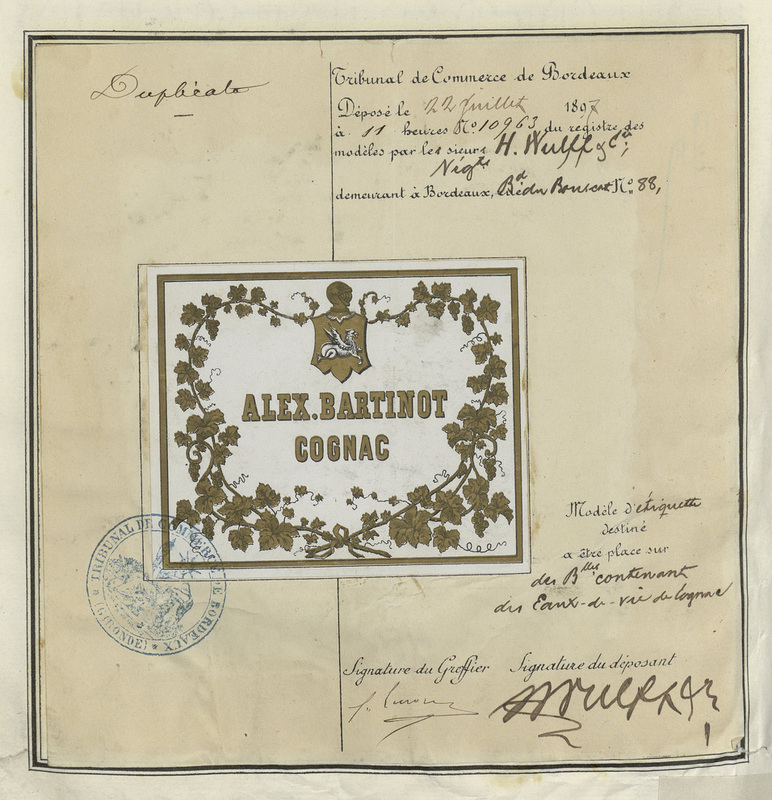 Duplicata
Tribunal de Commerce de Bordeaux
Déposé le 22 Juillet 1897
à 11 heures No. 10963 du registre des
modèles par les sieurs H. Wulff & Cie,
Négts
demeurant à Bordeaux, Bd du Bouscat No. 88,
ALEX. BARTINOT
COGNAC
Modèle d'étiquette
destiné
a être place sur
des Blles contenant
des Eaux-de-vie de Cognac
TRIBUNAL DE COMMERCE DE BORDEAUX
(GIRONDE)
Signature du Greffier Signature du déposant
H Wulff & Cie